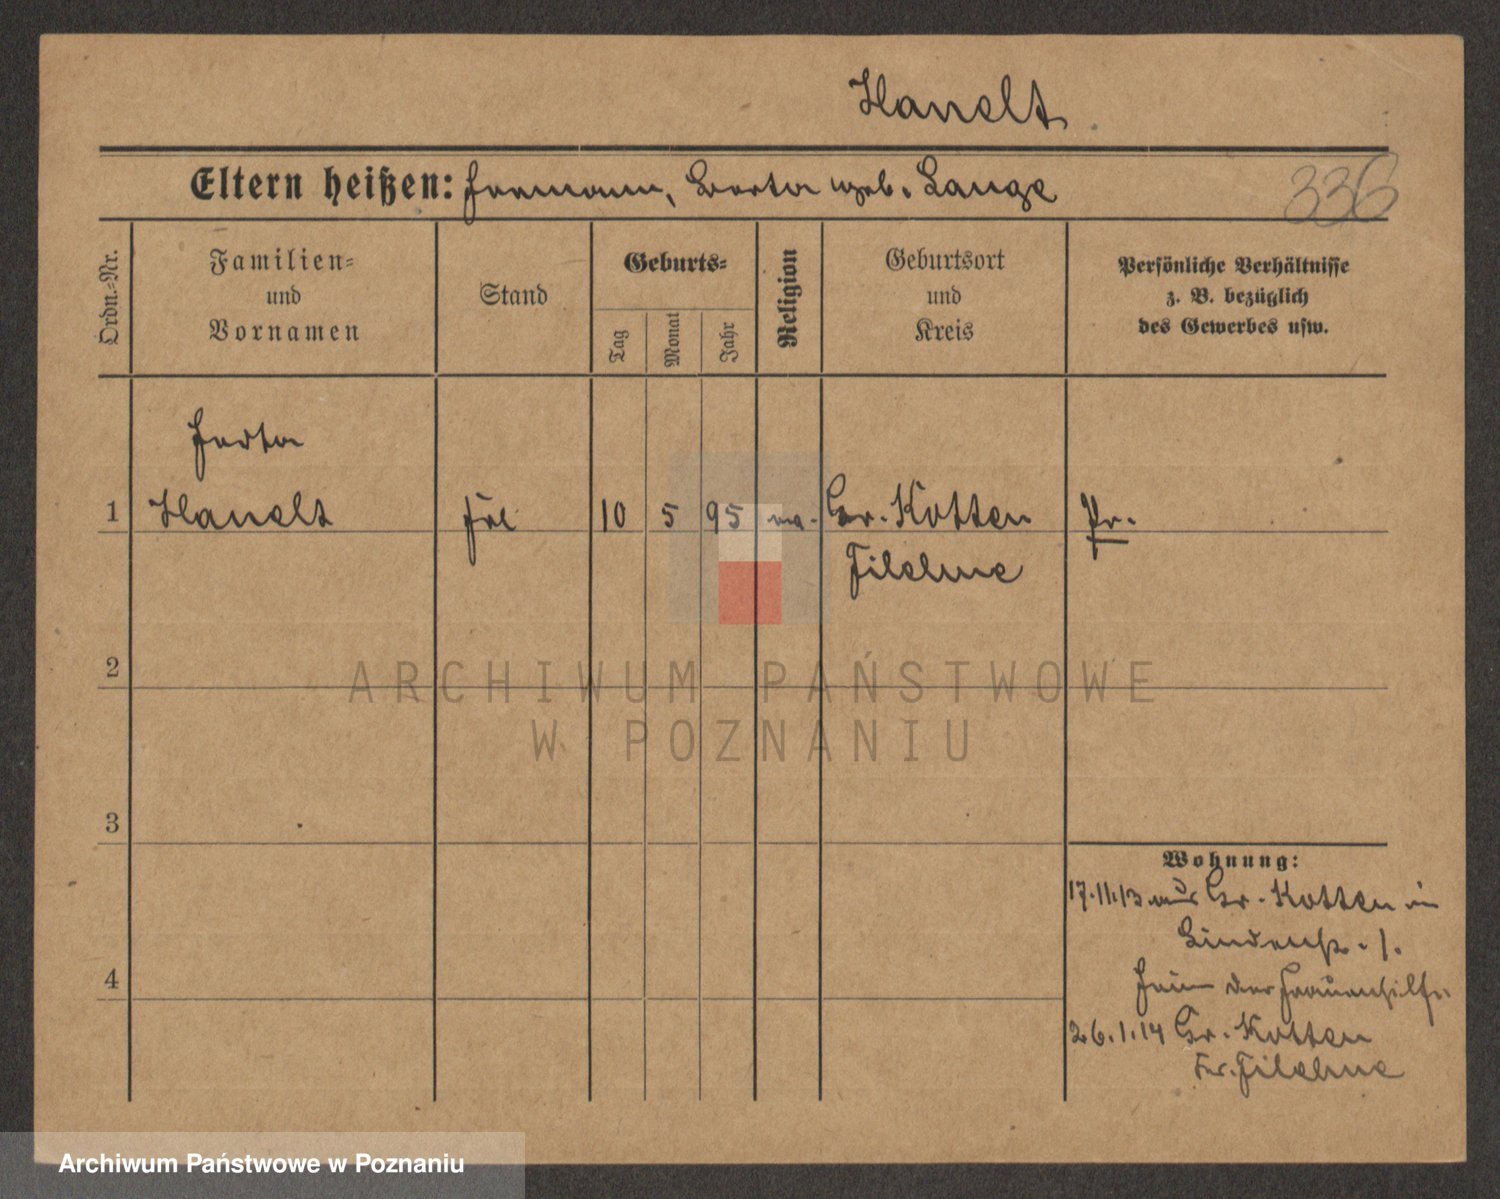 Hanelt
Eltern heißen: Hermann, Berta geb. Lange
336
Ordn.-Nr.
Familien-
und
Vornamen
Stand
Geburts-
Tag
Monat
Jahr
Religion
Geburtsort
und
Kreis
Persönliche Verhältnisse
z. B. bezüglich
des Gewerbes usw.
Herta
1 Hanelt Frl 10 5 95 ev. Gr. Kotten Pr.
Filehne
2
ARCHIWUM PAŃSTWOWE
W POZNANIU
3
Wohnung:
17.11.13 aus Gr. Kotten in
Lindenstr. 1.
4
Heim der Frauenhilfe
26.1.14 Gr. Kotten
Kr. Filehne
Archiwum Państwowe w Poznaniu